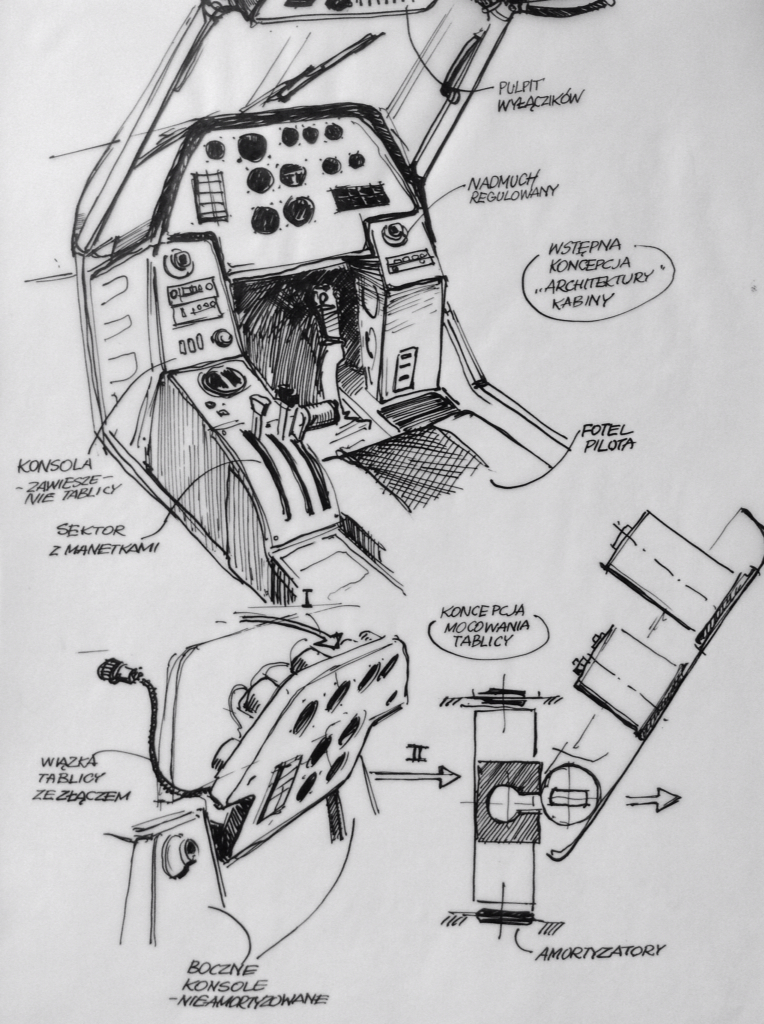 PULPIT
WYŁĄCZIKÓW
NADMUCH
REGULOWANY
WSTĘPNA
KONCEPCJA
„ARCHITEKTURY"
KABINY
FOTEL
PILOTA
KONSOLA
-ZAWIESZE-
NIE TABLICY
SEKTOR
Z MANETKAMI
I
KONCEPCJA
MOCOWANIA
TABLICY
II
WIĄZKA
TABLICY
ZE ZŁĄCZEM
AMORTYZATORY
BOCZNE
KONSOLE
-NIEAMORTYZOWANE